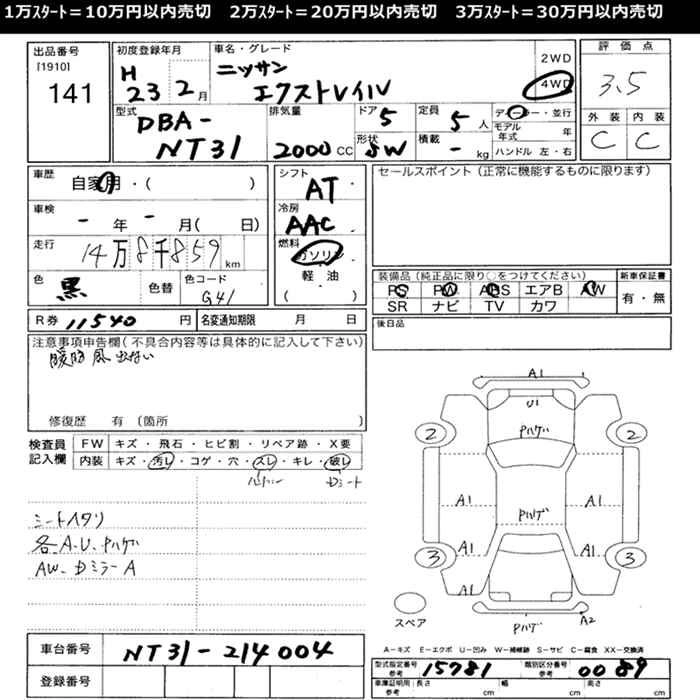 1万ｽﾀｰﾄ＝10万円以内売切　2万ｽﾀｰﾄ＝20万円以内売切　3万ｽﾀｰﾄ＝30万円以内売切
出品番号
[1910]
141
初度登録年月
H
23 2月
車名・グレード
ニッサン
エクストレイル
2WD
4WD
評価点
3.5
外装 内装
C C
型式
DBA-
NT31
排気量
2000 CC
ドア 5
形状 SW
定員 5 人
積載 - kg
ディーラー・並行
モデル年式 年
ハンドル 左・右
車歴
自家用・( )
車検
- 年 - 月( 日)
走行
14万8千859 km
色 黒 色替
色コード
G41
シフト
AT
冷房
AAC
燃料
ガソリン
軽油
( )
セールスポイント（正常に機能するものに限ります）
装備品（純正品に限り○をつけてください）
PS PW ABS エアB AW
SR ナビ TV カワ
新車保証書
有・無
R券 11540 円 名変通知期限 月 日
後日品
注意事項申告欄（不具合内容等は具体的に記入して下さい）
暖房 風 出ない
修復歴 有（箇所 ）
検査員
記入欄
FW キズ・飛石・ヒビ割・リペア跡・X要
内装 キズ・汚レ・コゲ・穴・スレ・キレ・破レ
Dシート
シートヘタリ
各A.U.Pハゲ
AW.DミラーA
A1
U1
Pハゲ
2 2
A1 Pハゲ A1
A1 A1
3 3
A1
スペア
Pハゲ A2
A－キズ E－エクボ U－凹み W－補修跡 S－サビ C－腐食 XX－交換済
車台番号 NT31-214004
登録番号
型式指定番号
参考
15781
類別区分番号
参考
0089
車庫証明用
参考
長さ cm 幅 cm 高さ cm